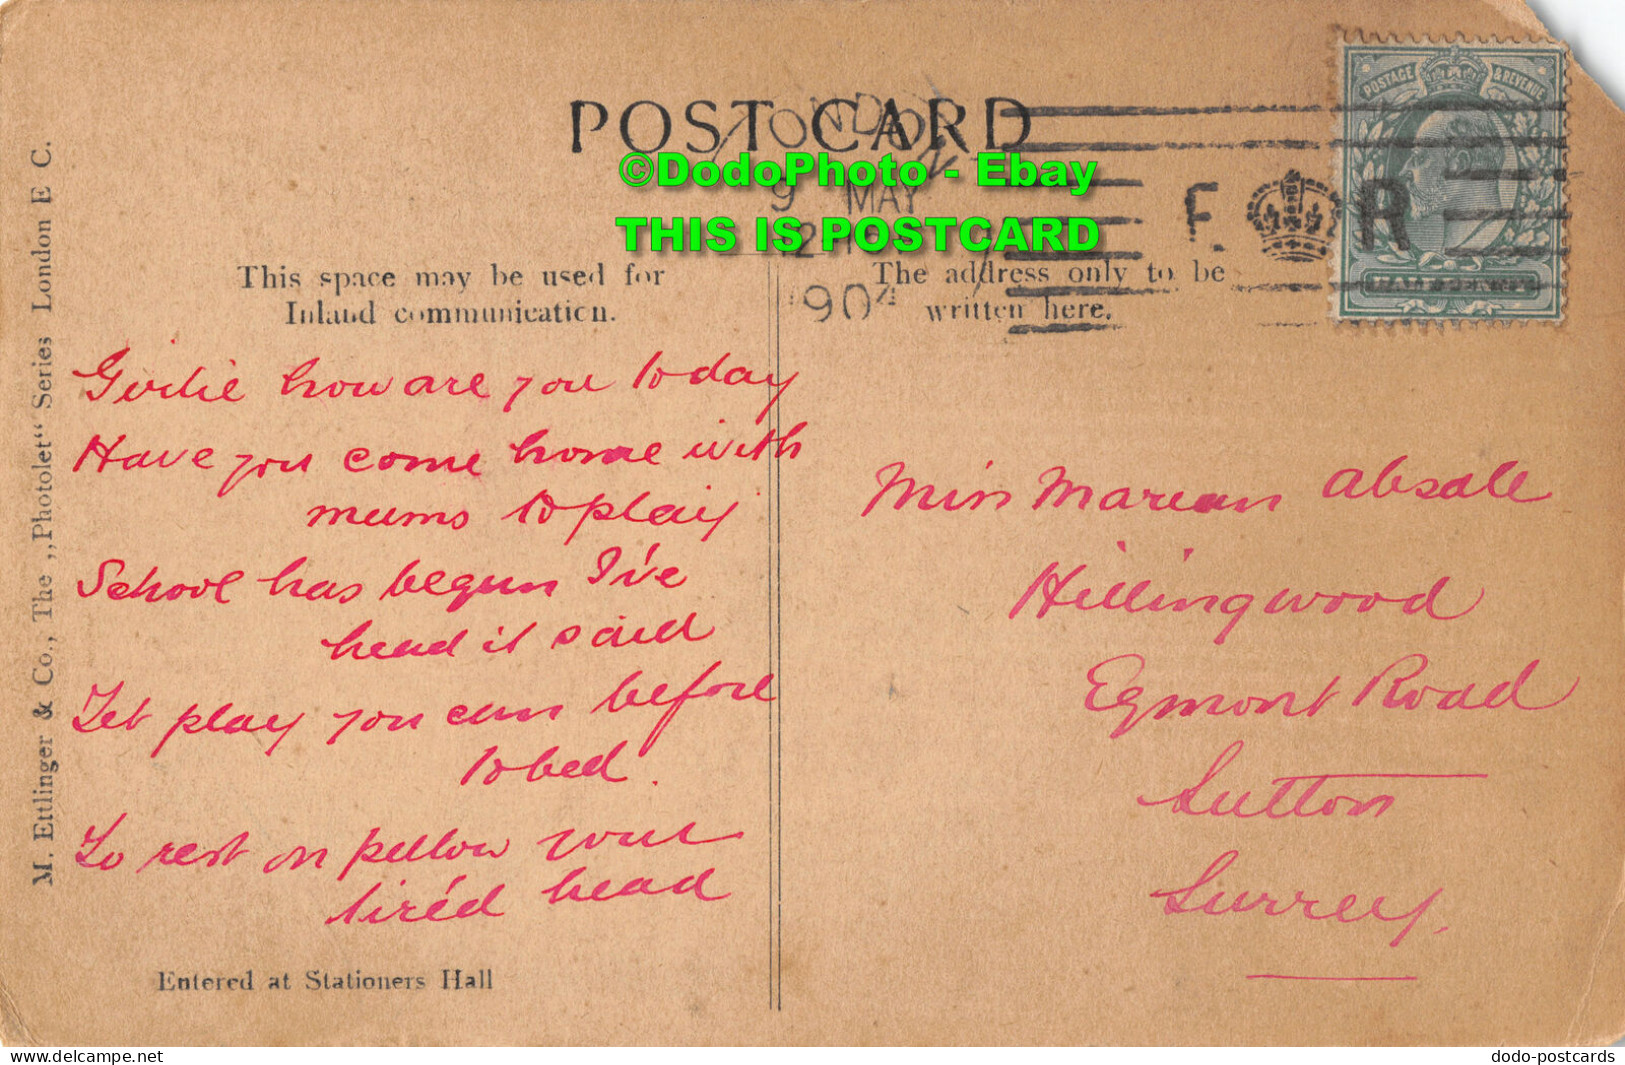 POST CARD
LONDON
9 MAY
1904
©DodoPhoto - Ebay
THIS IS POSTCARD
E R
POSTAGE & REVENUE
HALFPENNY
M. Ettlinger & Co., The „Photolet“ Series London E C.
This space may be used for
Inland communication.
The address only to be
written here.
Girlie how are you today
Have you come home with
mums to play
School has begun I've
head it said
Yet play you can before
to bed.
To rest on pillow your
tire'd head
Miss Marean Absale
Hillingwood
Egmont Road
Sutton
Surrey.
Entered at Stationers Hall
www.delcampe.net
dodo-postcards